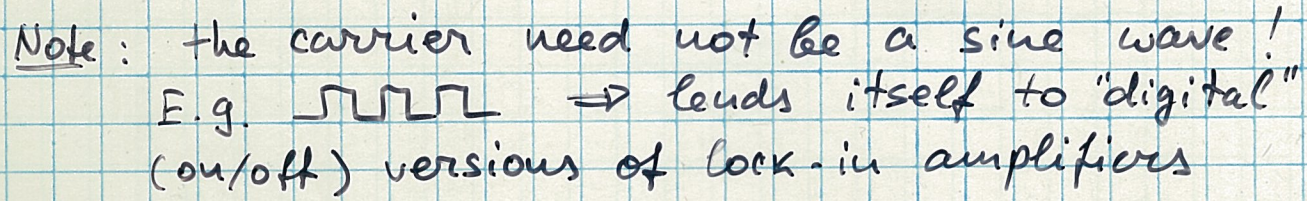 Note: the carrier need not be a sine wave!
E.g. ⇒ lends itself to "digital"
(on/off) versions of lock-in amplifiers